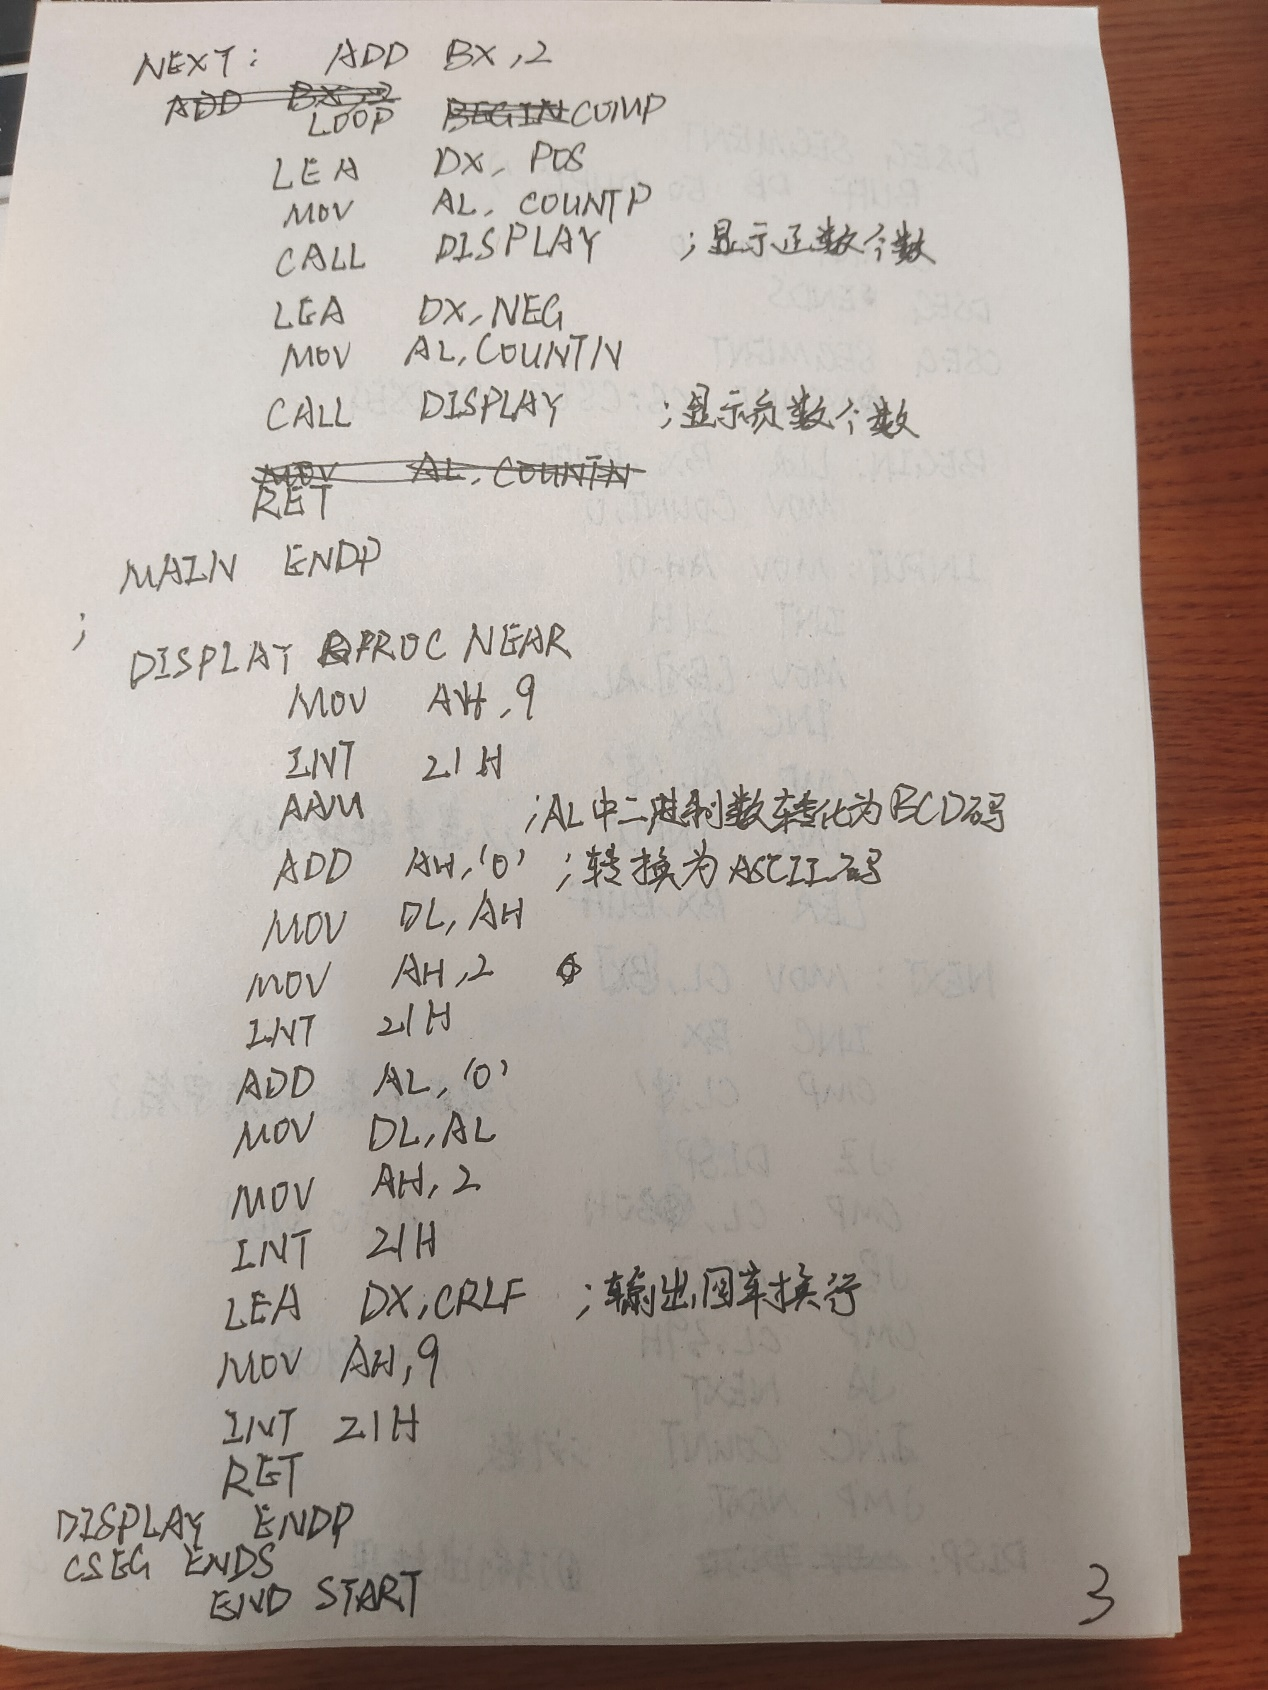 NEXT: ADD BX,2
ADD BX,2
LOOP BEGIN COMP
LEA DX, POS
MOV AL, COUNTP
CALL DISPLAY ;显示正数个数
LEA DX,NEG
MOV AL,COUNTN
CALL DISPLAY ;显示负数个数
MOV AL, COUNTN
RET
MAIN ENDP
;
DISPLAY PROC NEAR
MOV AH,9
INT 21H
AAM ;AL中二进制数转化为BCD码
ADD AH,'0' ;转换为ASCII码
MOV DL,AH
MOV AH,2
INT 21H
ADD AL,'0'
MOV DL,AL
MOV AH,2
INT 21H
LEA DX,CRLF ;输出回车换行
MOV AH,9
INT 21H
RET
DISPLAY ENDP
CSEG ENDS
END START
3